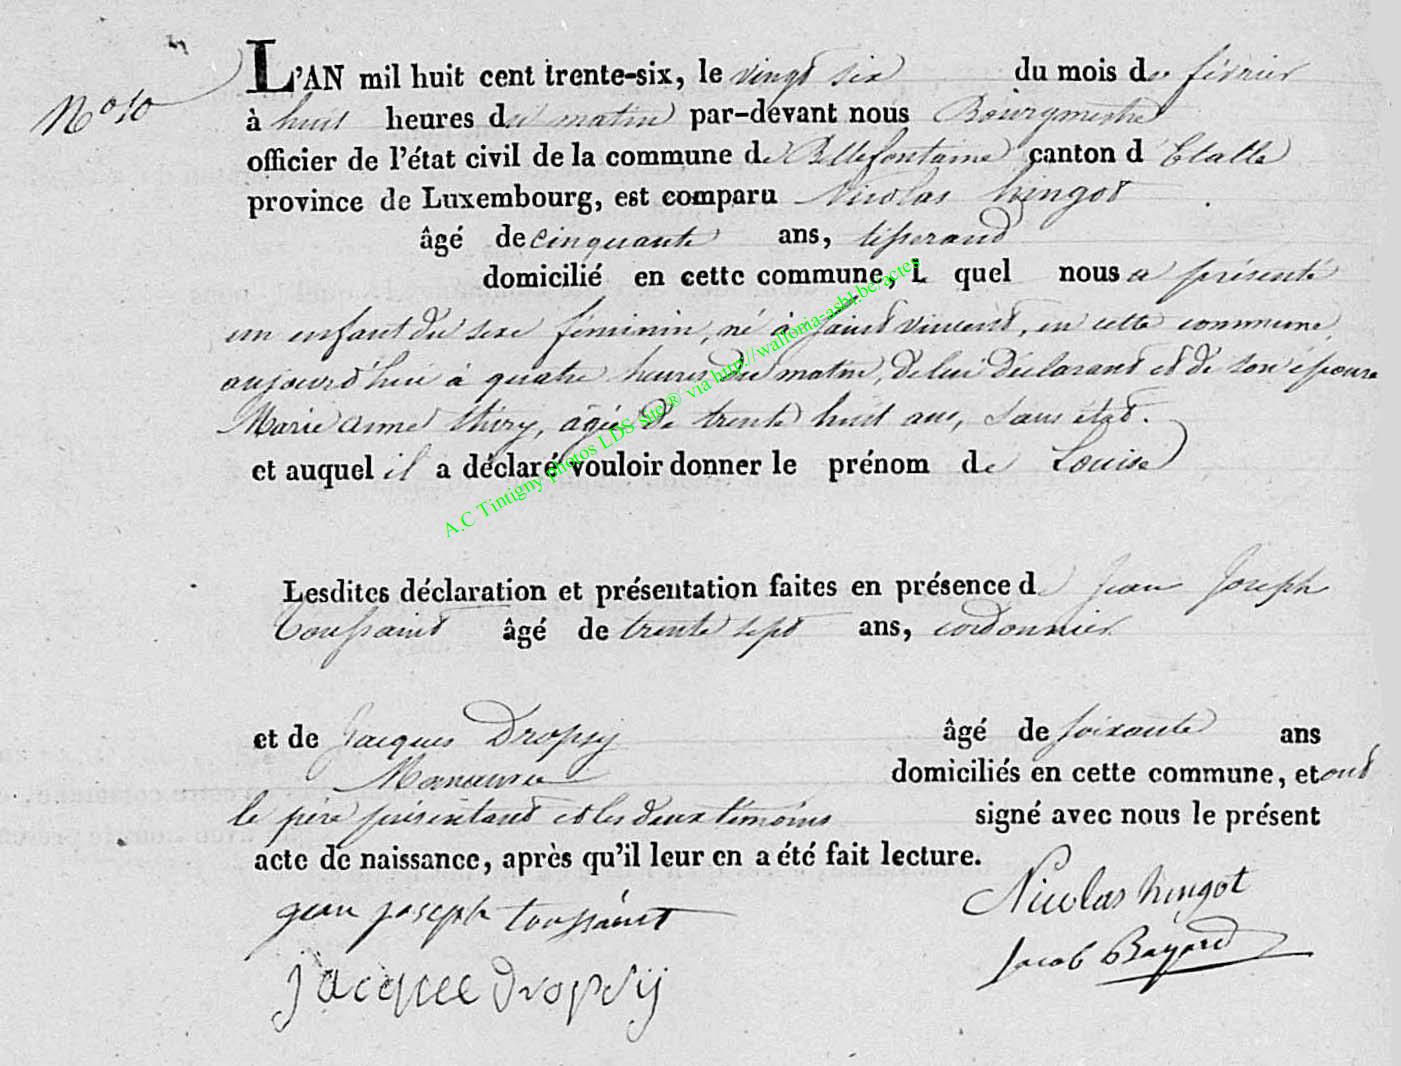 N° 10
L'AN mil huit cent trente-six, le vingt six du mois de février
à huit heures du matin par-devant nous Bourgmestre
officier de l'état civil de la commune de Bellefontaine canton d'Etalle
province de Luxembourg, est comparu Nicolas hingot
âgé de cinquante ans, tisserand
domicilié en cette commune, L quel nous a présenté
un enfant du sexe féminin, né à saint vincent, en cette commune
aujourd'hui à quatre heures du matin, de lui déclarant et de son épouse
Marie anne thiry, âgée de trente huit ans, sans état.
et auquel il a déclaré vouloir donner le prénom de Louise
Lesdites déclaration et présentation faites en présence de Jean Joseph
Toussaint âgé de trente sept ans, cordonnier
et de Jacques Dropsy âgé de soixante ans
Manœuvre domiciliés en cette commune, et ont
le père présentant et les deux témoins signé avec nous le présent
acte de naissance, après qu'il leur en a été fait lecture.
gean joseph toussaint Nicolas hingot
jacque dropsy Jacob Bayard
A.C Tintigny photos LDS site ® via http://wallonia-asbl.be/actes